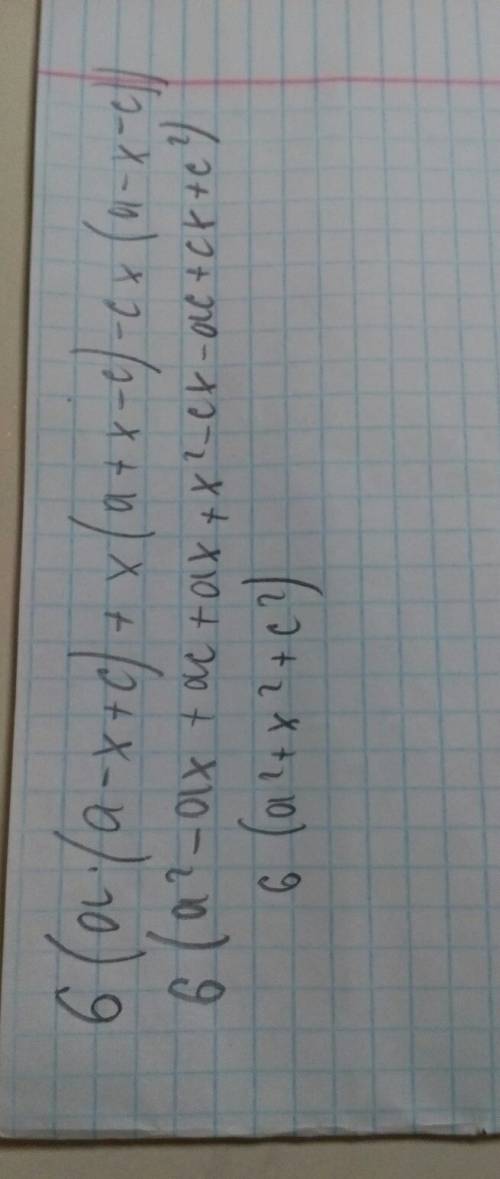 6(a·(a-x+c)+x(a+x-c)-cx(a-x-c))
6(a²-ax+ac+ax+x²-cx-ac+cx+c²)
6(a²+x²+c²)